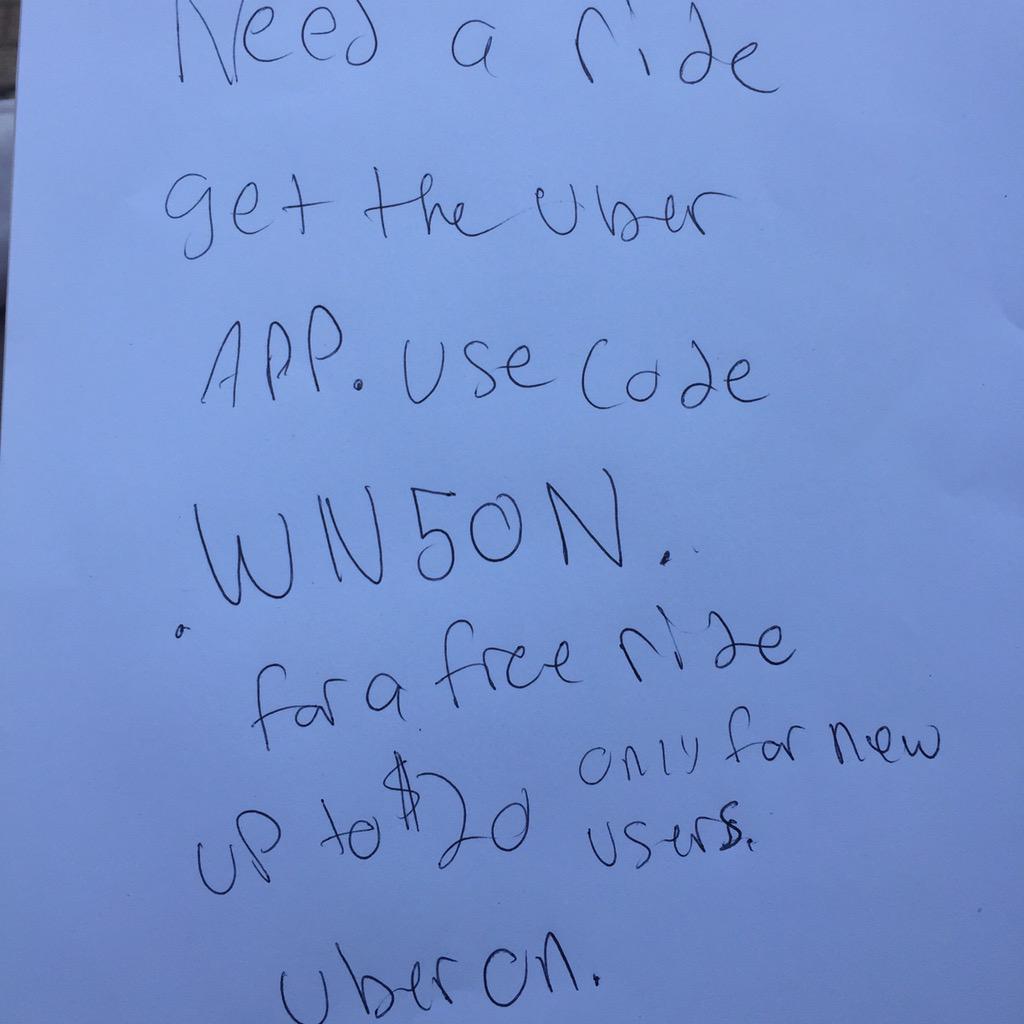 Need a ride
get the Uber
APP. Use Code
WN50N.
for a free ride
up to $20 only for new
users.
Uber on.